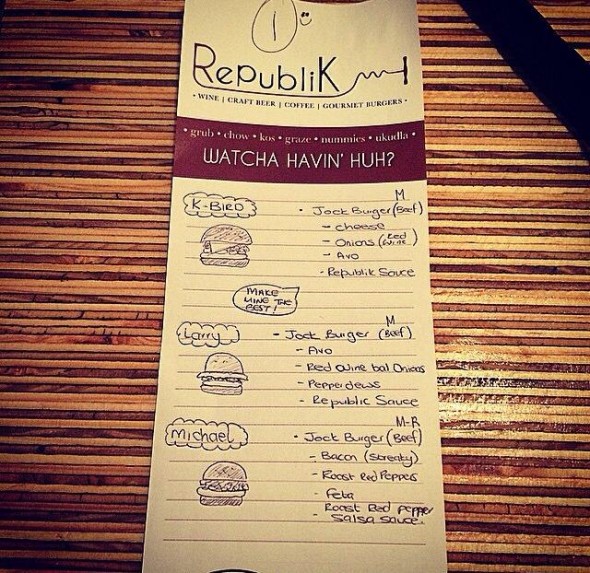 RepubliK
• WINE | CRAFT BEER | COFFEE | GOURMET BURGERS •
• grub • chow • kos • graze • nummies • ukudla •
WATCHA HAVIN' HUH?
M
K-BIRD • Jock Burger (Beef)
- cheese
- Onions (Red wine)
- Avo
- Republik Sauce
MAKE
MINE THE
BEST!
M
Larry - Jock Burger (Beef)
- Avo
- Red wine bal Onions
- Pepperdews
- Republic Sauce
M-R
Michael • Jock Burger (Beef)
- Bacon (Streaky)
- Roast Red Peppers
- Feta
- Roast Red pepper
Salsa sauce.